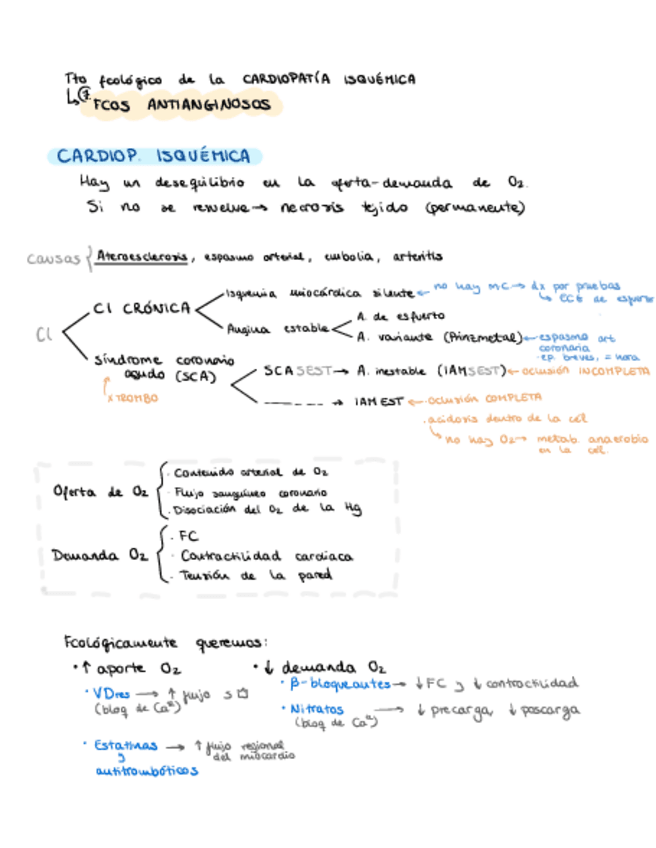 Tto fcológico de la CARDIOPATÍA ISQUÉMICA
FCOS ANTIANGINOSOS
CARDIOP. ISQUÉMICA
Hay un desequilibrio en la oferta-demanda de O2.
Si no se resuelve → necrosis tejido (permanente)
causas { Ateroesclerosis, espasmo arterial, embolia, arteritis
CI
CI CRÓNICA
Isquemia miocárdica silente ← no hay MC → dx por pruebas
↳ ECG de esfuerzo
Angina estable
A. de esfuerzo
A. variante (Prinzmetal) ← espasmo art
coronaria
·ep. breves, = hora
Síndrome coronario
agudo (SCA)
↑
x TROMBO
SCASEST → A. inestable (IAMSEST) ← oclusión INCOMPLETA
------ → IAMEST ← oclusión COMPLETA
. acidosis dentro de la cél
↳ no hay O2 → metab. anaerobio
en la cél.
Oferta de O2 {
· Contenido arterial de O2
· Flujo sanguíneo coronario
· Disociación del O2 de la Hg
Demanda O2 {
· FC
· Contractilidad cardiaca
· Tensión de la pared
Fcológicamente queremos:
· ↑ aporte O2
· VDres → ↑ flujo s
(bloq de Ca²⁺)
· Estatinas → ↑ flujo regional
y del miocardio
antitrombóticos
· ↓ demanda O2
· β-bloqueantes → ↓FC y ↓ contractilidad
· Nitratos → ↓ precarga, ↓ poscarga
(bloq de Ca²⁺)